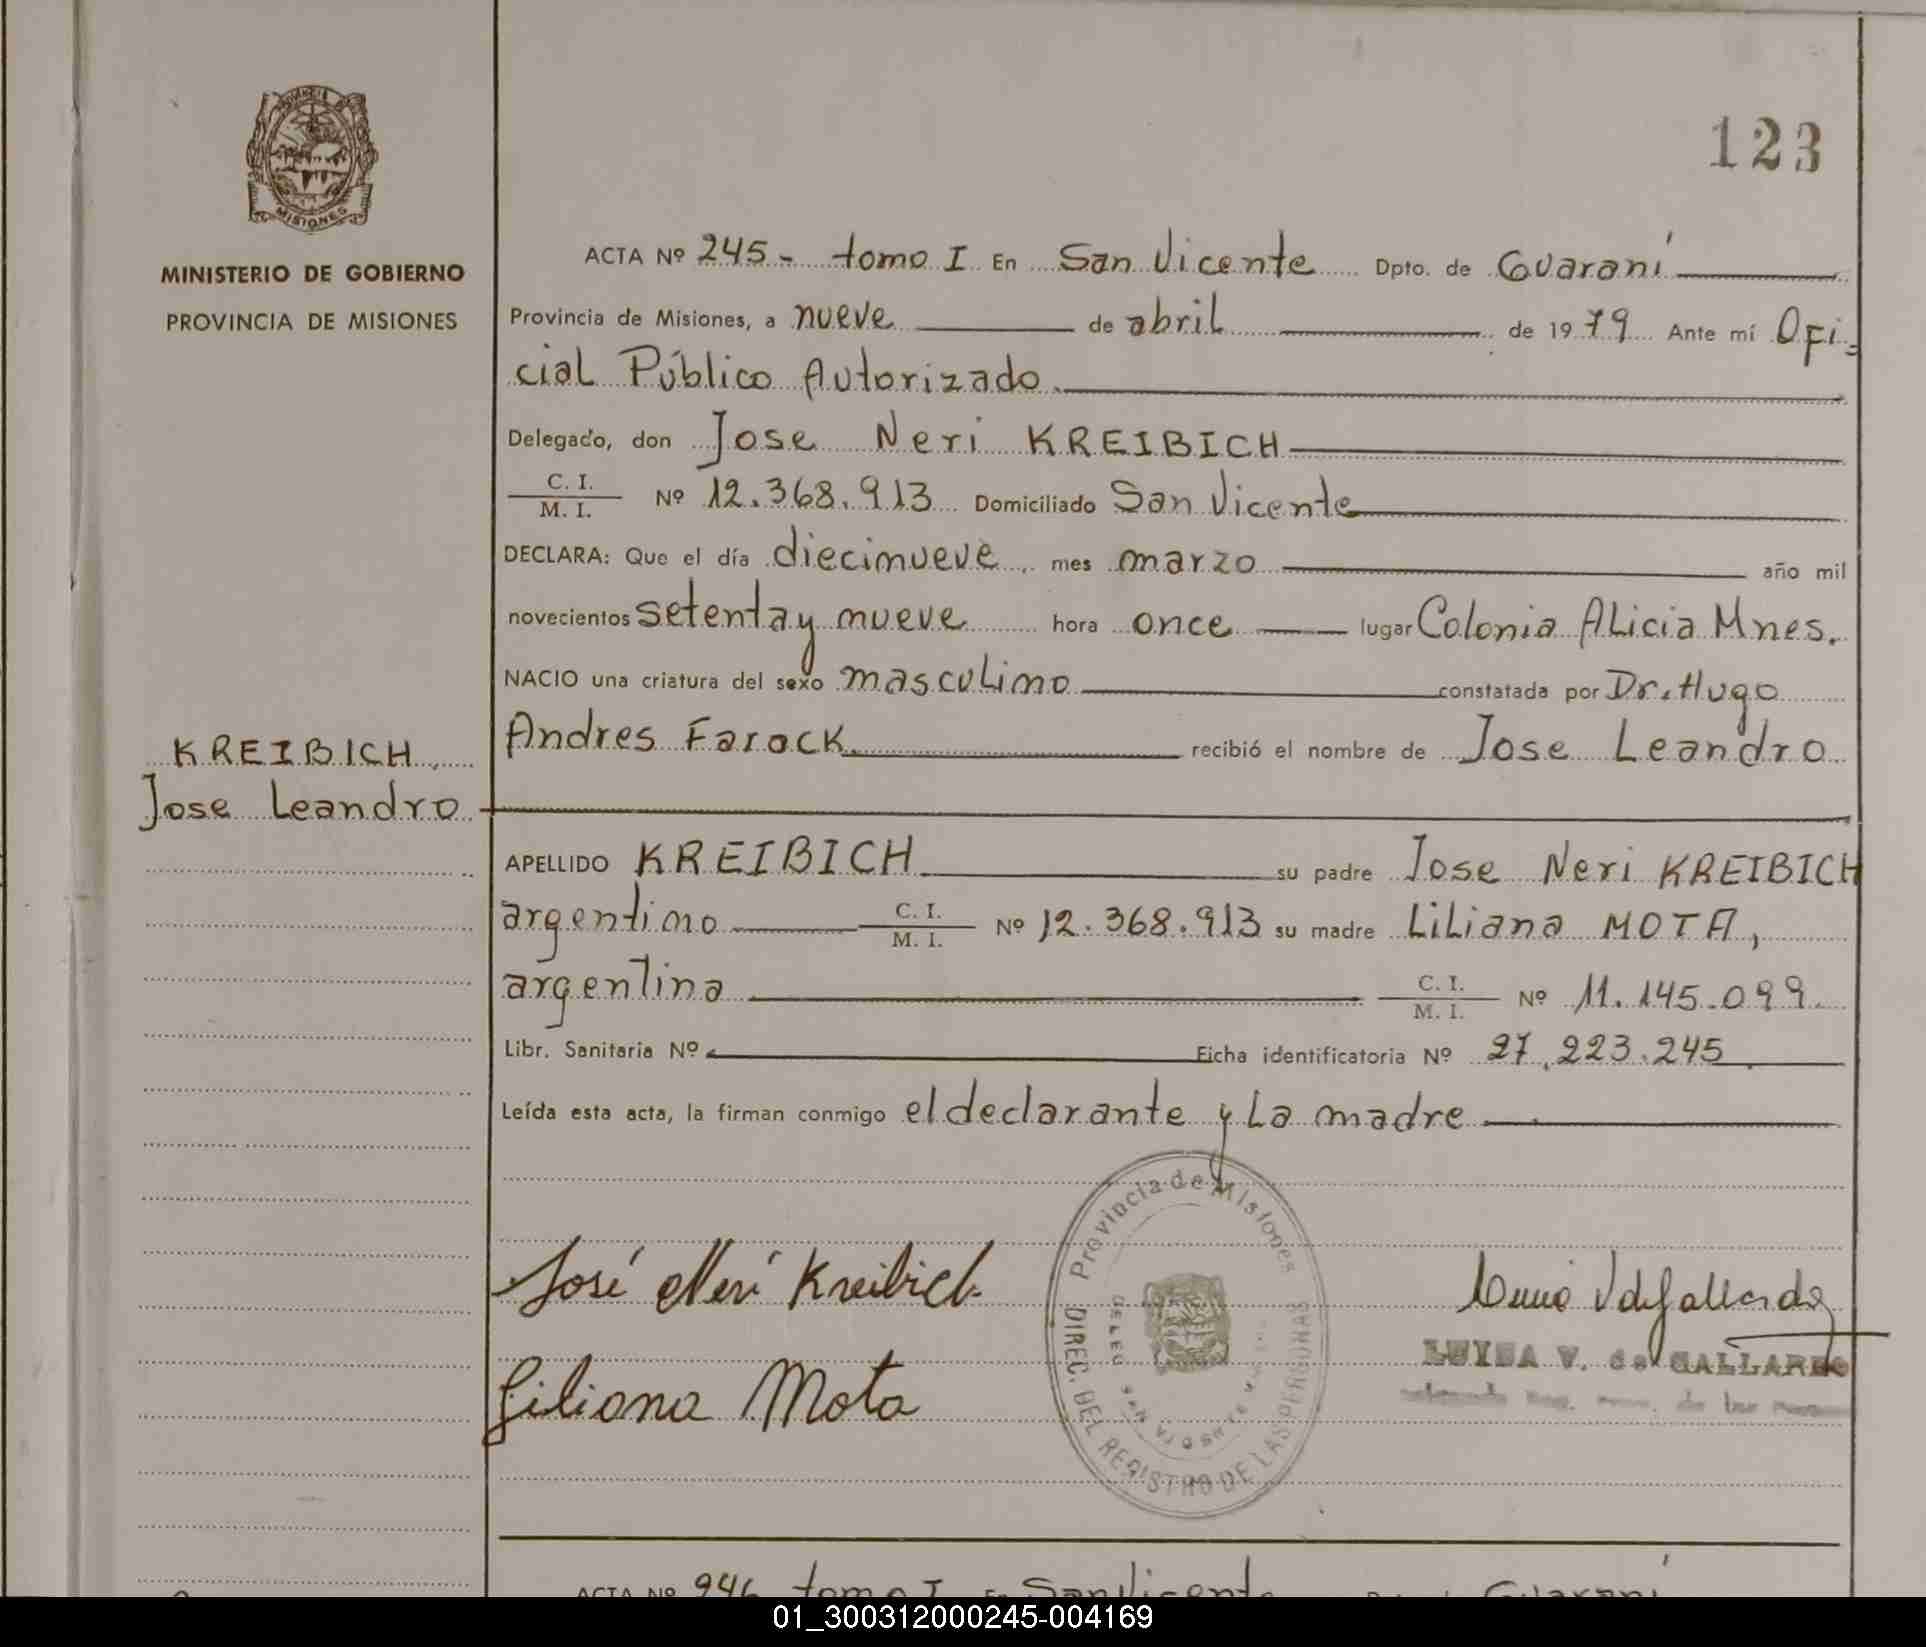 PROVINCIA DE
MISIONES
MINISTERIO DE GOBIERNO
PROVINCIA DE MISIONES
123
ACTA Nº 245 - tomo I En San Vicente Dpto. de Guaraní
Provincia de Misiones, a nueve de abril de 1979 Ante mí Ofi-
cial Público Autorizado.
Delegado, don Jose Neri KREIBICH
C. I.
M. I. Nº 12.368.913 Domiciliado San Vicente
DECLARA: Que el día diecinueve mes marzo año mil
novecientos setenta y nueve hora once lugar Colonia Alicia Mnes.
NACIO una criatura del sexo masculino constatada por Dr. Hugo
Andres Farock recibió el nombre de Jose Leandro
KREIBICH
Jose Leandro
APELLIDO KREIBICH su padre Jose Neri KREIBICH
argentino C. I. M. I. Nº 12.368.913 su madre Liliana MOTA,
argentina C. I. M. I. Nº 11.145.099
Libr. Sanitaria Nº Ficha identificatoria Nº 27.223.245
Leída esta acta, la firman conmigo el declarante y La madre
Provincia de Misiones
DIREC. DEL REGISTRO DE LAS PERSONAS
José Neri Kreibich
Liliana Mota
LUISA V. de GALLARDO
ACTA Nº 246 tomo I En San Vicente Guaraní
01_300312000245-004169